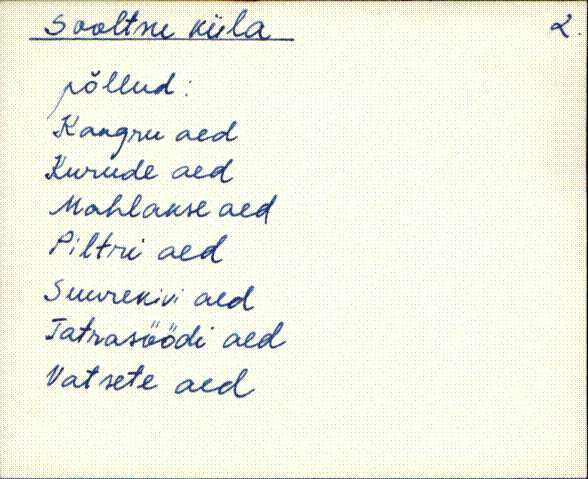 Sooltsu küla 2.
põllud:
Kangru aed
Kurude aed
Mahlakse aed
Piltri aed
Suurekivi aed
Tatrasöödi aed
Vatsete aed